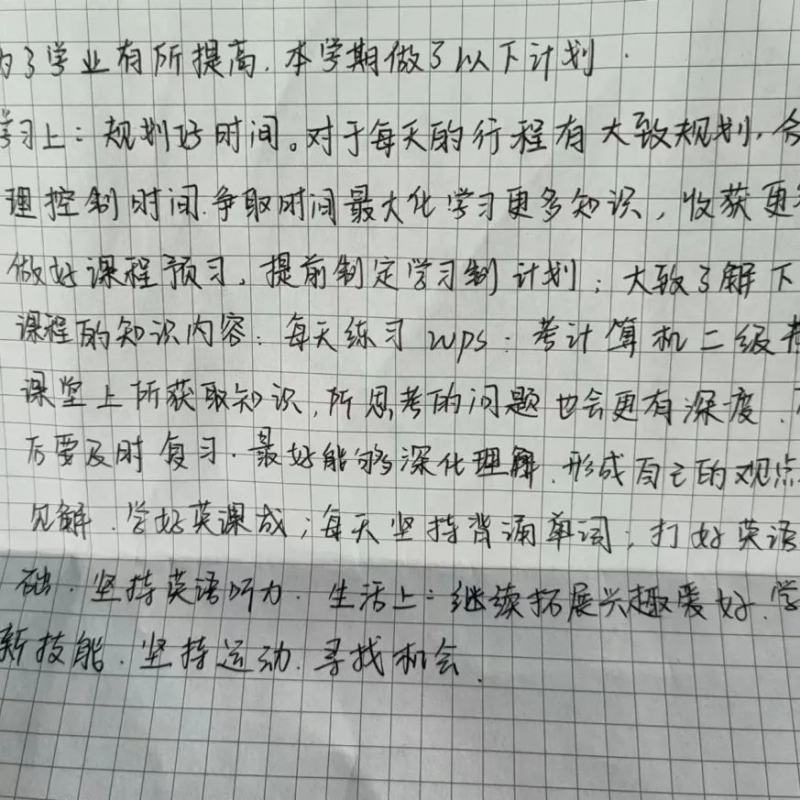 为了学业有所提高.本学期做了以下计划.
学习上:规划好时间。对于每天的行程有大致规划.合
理控制时间.争取时间最大化学习更多知识,收获更多
做好课程预习。提前制定学习制计划;大致了解下
课程的知识内容;每天练习wps;考计算机二级
课堂上所获取知识,所思考的问题也会更有深度.
后要及时复习.最好能够深化理解.形成自己的观点
见解.学好英课成;每天坚持背诵单词;打好英语
础.坚持英语听力.生活上:继续拓展兴趣爱好.学
新技能.坚持运动.寻找机会.